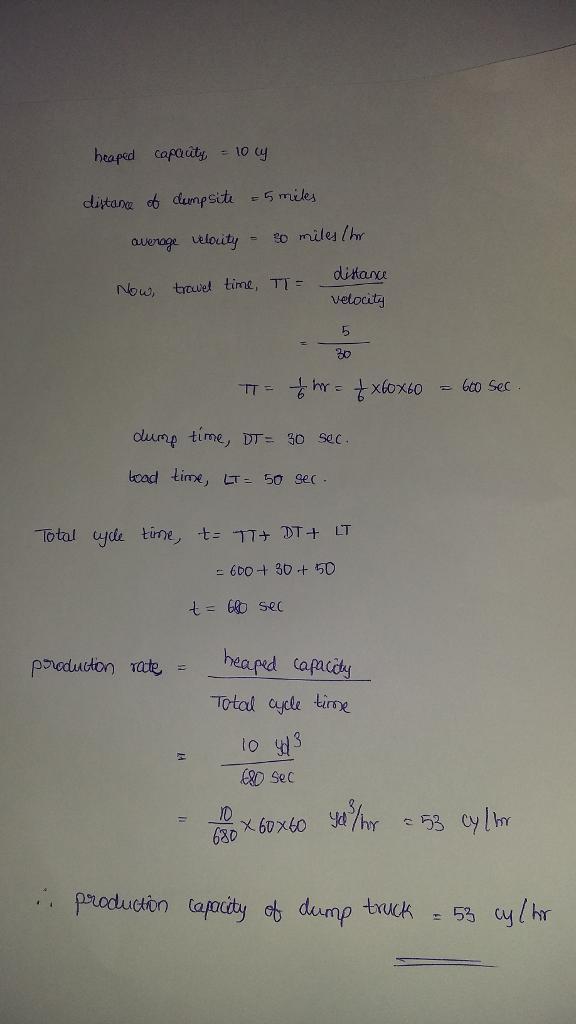 heaped capacity = 10 cy
distance of dumpsite = 5 miles
average velocity = 30 miles/hr
Now, travel time, TT = distance / velocity
= 5 / 30
TT = 1/6 hr = 1/6 x60x60 = 600 sec.
dump time, DT = 30 sec.
load time, LT = 50 sec.
Total cycle time, t = TT + DT + LT
= 600 + 30 + 50
t = 680 sec
production rate = heaped capacity / Total cycle time
= 10 yd³ / 680 sec
= 10/680 x 60x60 yd³/hr = 53 cy/hr
∴ production capacity of dump truck = 53 cy/hr